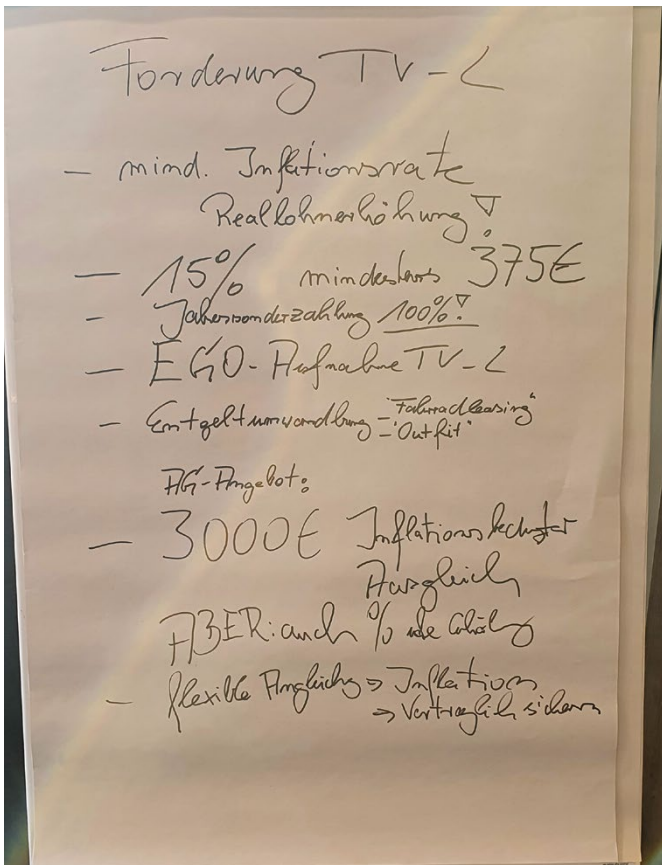 Forderung TV-L
- mind. Inflationsrate
Reallohnerhöhung!
- 15% mindestens 375€
- Jahressonderzahlung 100%!
- EGO-Aufnahme TV-L
- Entgeltumwandlung - "Fahrradleasing"
- "Outfit"
AG-Angebot:
- 3000€ Inflations
Ausgleich
ABER: auch %
- flexible Angleichg => Inflation
=> Vertraglich sichern